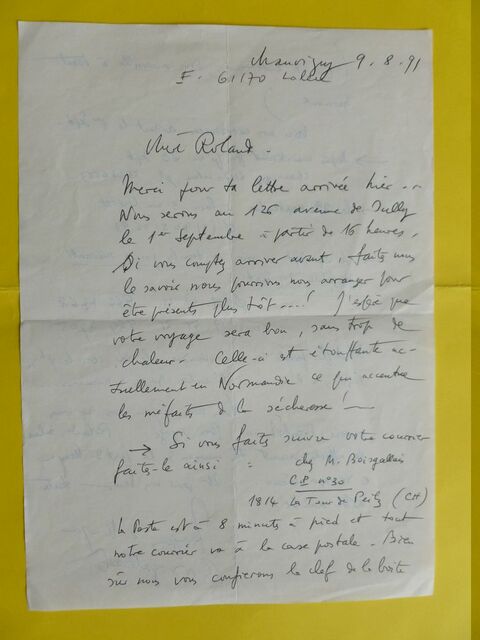 Mauvigny 9.8.91
F. 61170 Laleu
Cher Roland -
Merci pour ta lettre arrivée hier...
Nous serons au 126 avenue de Sully
le 1er Septembre à partir de 16 heures.
Si vous comptez arriver avant, faites nous
le savoir nous pourrions nous arranger pour
être présents plus tôt...! J'espère que
votre voyage sera bon, sans trop de
chaleur - Celle-ci est étouffante ac-
tuellement en Normandie ce qui accentue
les méfaits de la sécheresse! -
→ Si vous faites suivre votre courrier
faites-le ainsi = chez M. Boisgallais
CP n°30
1814 La Tour de Peilz (CH)
La Poste est à 8 minutes à pied et tout
notre courrier va à la case postale - Bien
sûr nous vous confierons la clef de la boîte